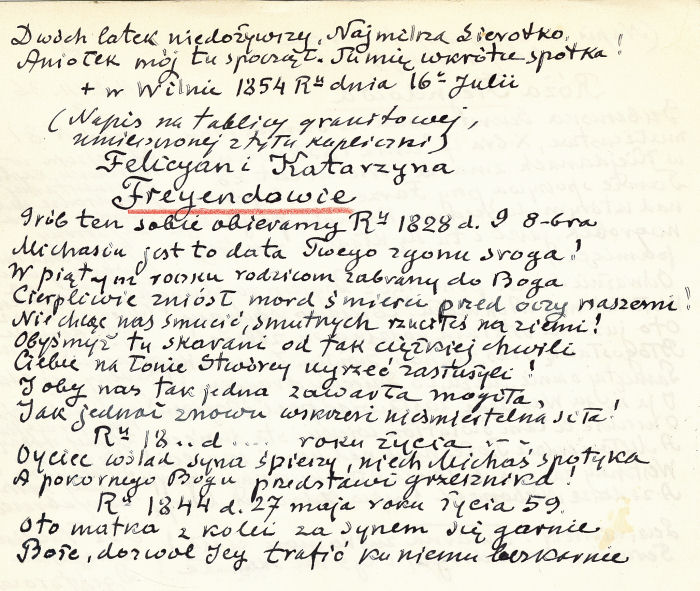 Dwóch latek niedożywszy, Najmilsza Sierotko,
Aniołek mój tu spoczął. Tu mię wkrótce spotka!
+ w Wilnie 1854 Rᵘ dnia 16º Julii
(Napis na tablicy granitowej,
umieszonej z tyłu kapliczni)
Felicyan i Katarzyna
Freyendowie
Grób ten sobie obieramy Rᵘ 1828 d. 9 8-bra
Michasiu jest to data Twego zgonu sroga!
W piątym roczku rodzicom zabrany do Boga
Cierpliwie zniósł mord śmierci przed oczy naszemi!
Nie chcąc nas smucić, smutnych rzuciłeś na ziemi!
Obyśmyż tu skarani od tak ciężkiej chwili
Ciebie na łonie Stwórcy ujrzeć zasłużyli!
I oby nas tak jedna zawarła mogiła,
Jak jednaż znowu wskrzesi nieśmiertelna siła!
Rᵘ 18.. d.... roku życia - -
Oyciec wślad syna śpieszy, niech Michaś spotyka
A pokornego Bogu przedstawi grzesznika!
Rᵘ 1844 d. 27 maja roku życia 59.
Oto matka z kolei za synem się garnie
Boże, dozwól Jey trafić ku niemu bezkarnie